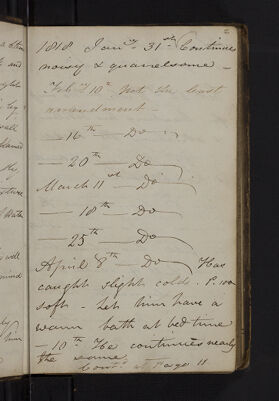 2
1818 Jany. 31st Continues
noisy & quarrelsome —
Feby 10th Not the least
amendment —
— 16th — Do
— 20th — Do
March 11st — Do
— 18th — Do
— 25th — Do
April 8th — Do — Has
caught slight cold. P. 100
soft — Let him have a
warm bath at bed time
— 10th He continues nearly
the same.
Cont. at Page 11